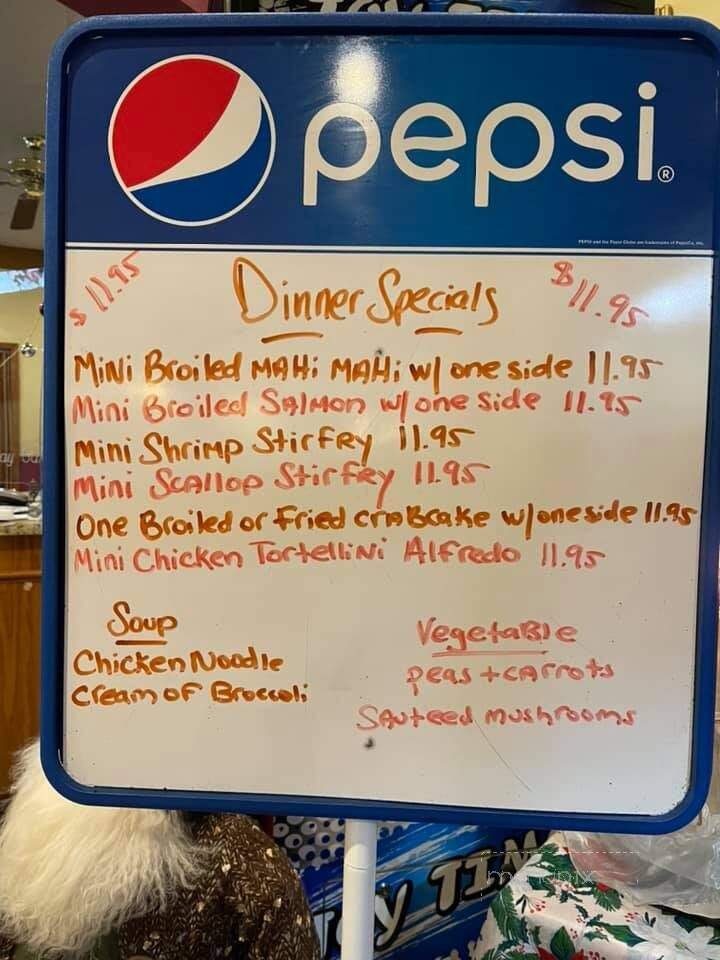 pepsi®
$11.95 Dinner Specials $11.95
Mini Broiled MAHi MAHi w/ one side 11.95
Mini Broiled SAlmon w/ one side 11.95
Mini Shrimp Stir fry 11.95
Mini Scallop Stir fry 11.95
One Broiled or fried craBcake w/ one side 11.95
Mini Chicken Tortellini Alfredo 11.95
Soup
Chicken Noodle
Cream of Broccoli
Vegetable
peas + carrots
Sauteed mushrooms
TOY TIM